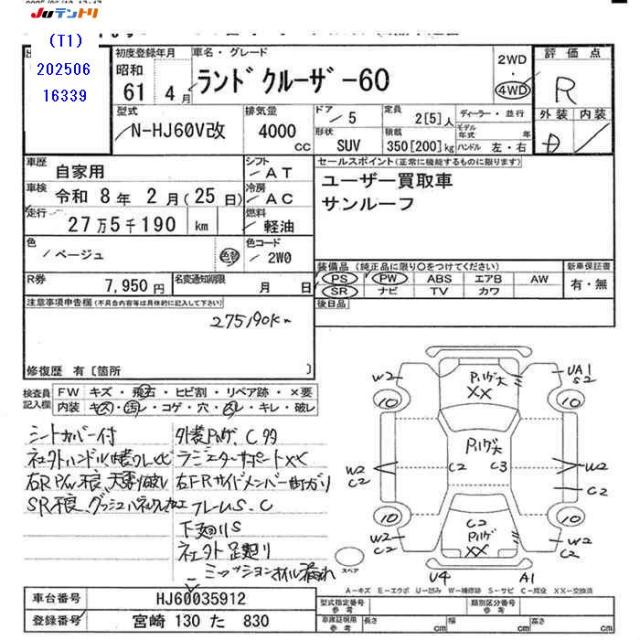 Juテントリ
(T1)
202506
16339
初度登録年月
車名・グレード
評価点
昭和
61 4月
ランドクルーザー60
2WD
4WD
R
外装 内装
D
型式
排気量
ドア
定員
ディーラー・並行
N-HJ60V改
4000
cc
5
2[5]人
モデル年式
年
形状
SUV
積載
350[200]kg
ハンドル 左・右
車歴
自家用
シフト
AT
セールスポイント(正常に機能するものに限ります)
車検
令和 8年 2月(25日)
冷房
AC
ユーザー買取車
サンルーフ
走行
27万5千190 km
燃料
軽油
色
ベージュ
色替
色コード
2W0
装備品(純正品に限り〇をつけてください)
新車保証書
PS PW ABS エアB AW
有・無
SR ナビ TV カワ
R券
7,950円
名変通知期限
月 日
後日品
注意事項申告欄(不具合内容等は具体的に記入して下さい)
275190Km
修復歴 有〔箇所 〕
検査員記入欄
FW キズ・飛石・ヒビ割・リペア跡・×要
内装 キズ・汚レ・コゲ・穴・スレ・キレ・破レ
シートカバー付
外装Pハゲ、C多々
ラジエターサポートXX
右FRサイドメンバー曲ガリ
フレームS、C
下廻りS
ミッションオイル漏れ
W2
UA1
S2
10
10
Pハゲ大
XX
Pハゲ大
W2
C2
C2
C3
W2
C2
10
10
C2
Pハゲ
XX
W2
C2
W2
C2
スペア
U4
A1
A-キズ E-エクボ U-凹ミ W-補修跡 S-サビ C-腐蝕 XX-交換済
車台番号
HJ60035912
型式指定番号
類別区分番号
登録番号
宮崎 130 た 830
車庫証明用参考
長さ
cm
幅
cm
高さ
cm